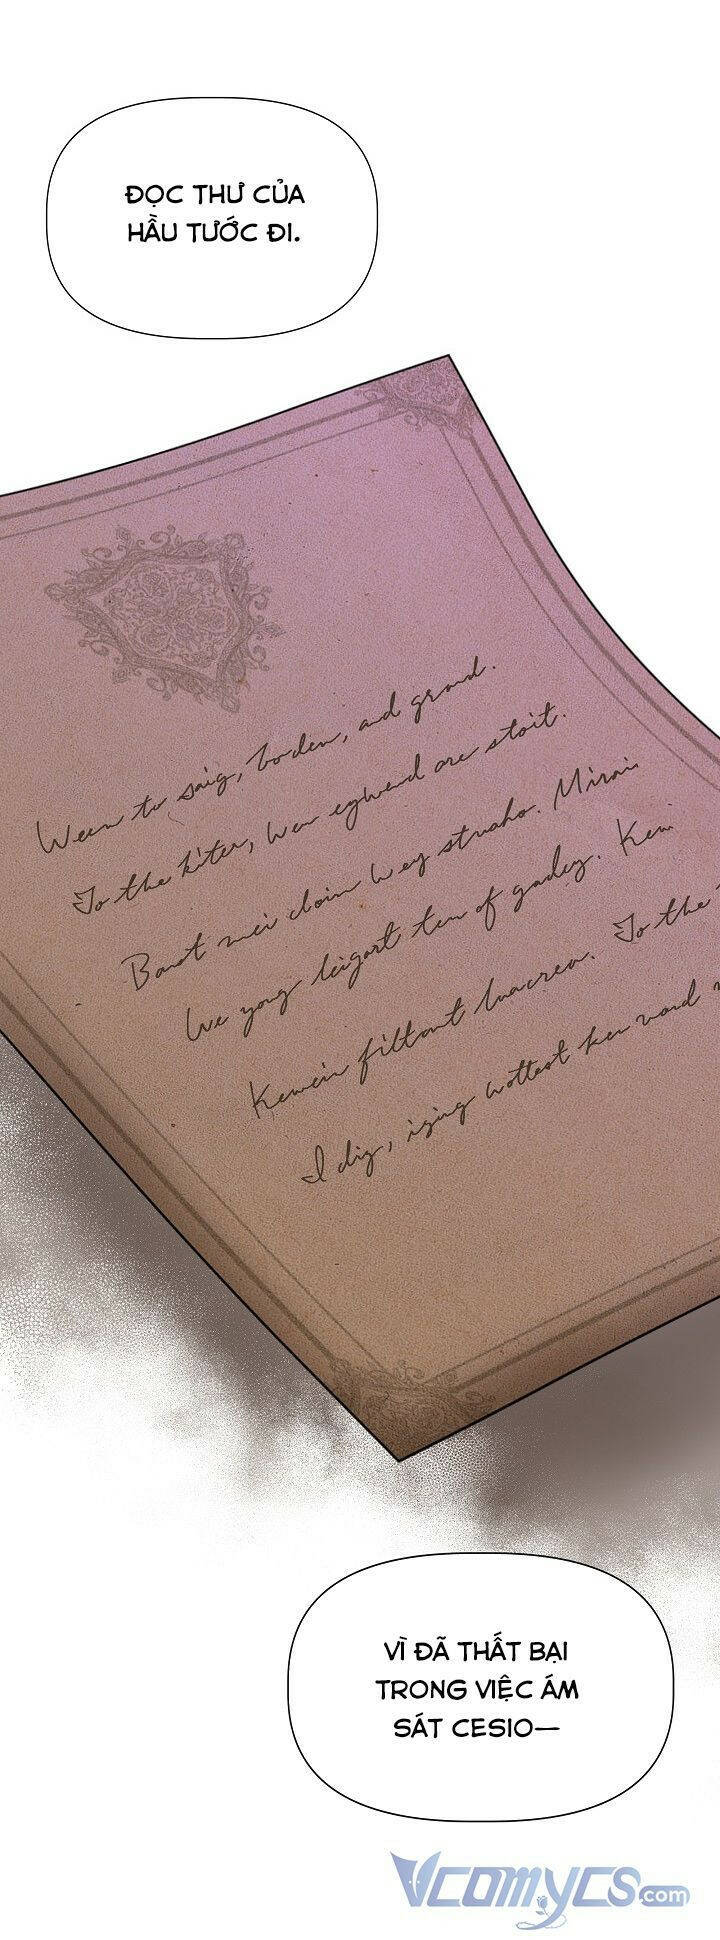 ĐỌC THƯ CỦA
HẦU TƯỚC ĐI.
to saig, boden, and grand.
To the kiter, wen egwend are stoit.
Banet mei doin wey
We yong leigart ten of gadey. Kem
Kewein filtant luacrea. To the
I dig, wottest ken
VÌ ĐÃ THẤT BẠI
TRONG VIỆC ÁM
SÁT CESIO—
VCOMYCS.com